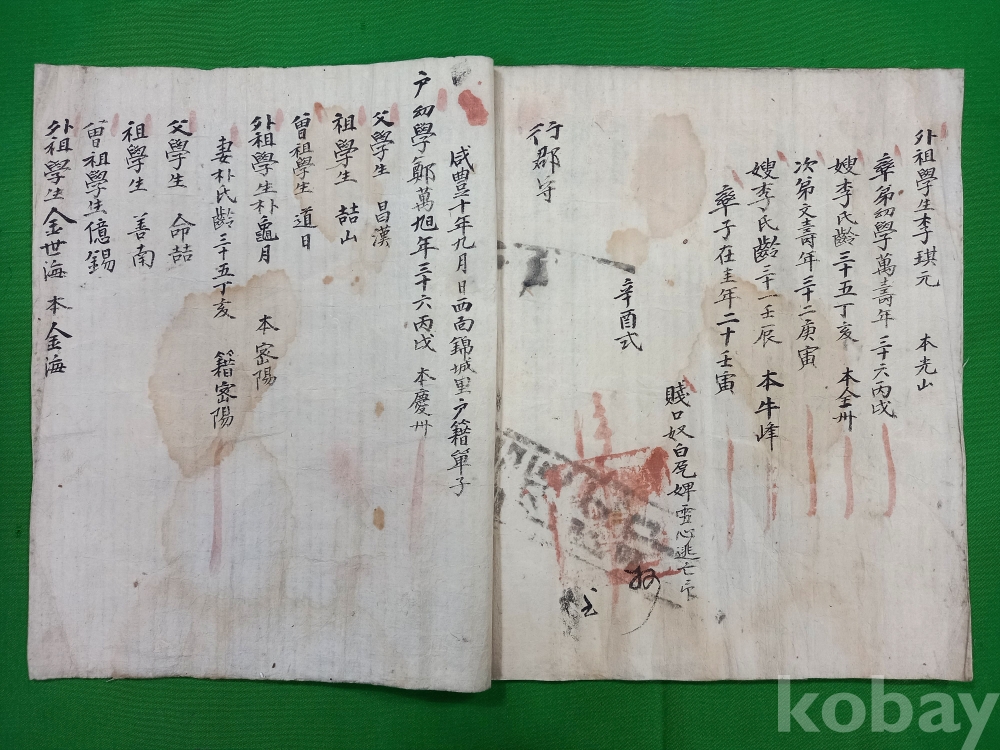 外祖學生李琪元 本光山
率弟幼學萬壽年三十六丙戌
嫂李氏齡三十五丁亥 本全州
次弟文壽年三十二庚寅
嫂李氏齡三十一壬辰 本牛峰
率子在圭年二十壬寅
賤口奴白 婢 心逃亡
辛酉式
行郡守
咸豊十年九月 日西面錦城里戶籍單子
戶幼學鄭萬旭年三十六丙戌 本慶州
父學生 昌漢
祖學生 喆山
曾祖學生 道日
外祖學生朴龜月 本密陽
妻朴氏齡三十五丁亥 籍密陽
父學生 命喆
祖學生 善南
曾祖學生億錫
外祖學生金世海 本金海
kobay